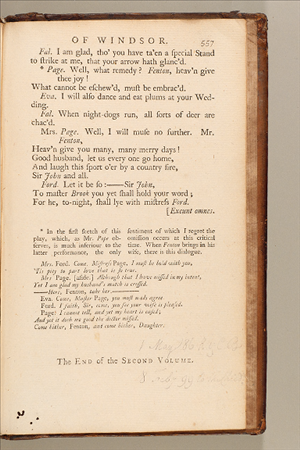 OF WINDSOR. 557
Fal. I am glad, tho' you have ta'en a ſpecial Stand
to ſtrike at me, that your arrow hath glanc'd.
* Page. Well, what remedy? Fenton, heav'n give
thee joy!
What cannot be eſchew'd, muſt be embrac'd.
Eva. I will alſo dance and eat plums at your Wed-
ding.
Fal. When night-dogs run, all ſorts of deer are
chac'd.
Mrs. Page. Well, I will muſe no further. Mr.
Fenton,
Heav'n give you many, many merry days!
Good husband, let us every one go home,
And laugh this ſport o'er by a country fire,
Sir John and all.
Ford. Let it be ſo:——Sir John,
To maſter Brook you yet ſhall hold your word;
For he, to-night, ſhall lye with miſtreſs Ford.
[Exeunt omnes.
* In the firſt ſketch of this
play, which, as Mr. Pope ob-
ſerves, is much inferiour to the
latter performance, the only
ſentiment of which I regret the
omiſſion occurs at this critical
time. When Fenton brings in his
wife, there is this dialogue.
Mrs. Ford. Come, Miſtreſs Page, I muſt be bold with you,
'Tis pity to part love that is ſo true.
Mrs. Page. [aſide.] Although that I have miſſed in my intent,
Yet I am glad my husband's match is croſſed.
——Here, Fenton, take her.——
Eva. Come, Maſter Page, you muſt needs agree.
Ford. I' faith, Sir, come, you ſee your wife is pleaſed.
Page. I cannot tell, and yet my heart is eaſed;
And yet it doth me good the doctor miſſed.
Come hither, Fenton, and come hither, Daughter.
The END of the SECOND VOLUME.